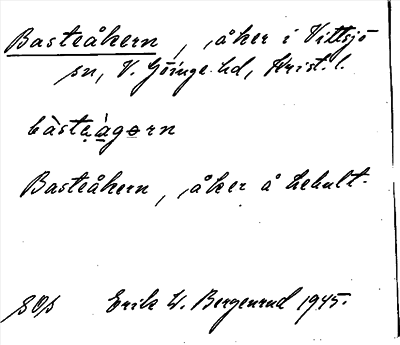 Basteåkern, åker i Vittsjö
sn, V. Göinge hd, Krist. l.
bàstẹàgẹrn
Basteåkern, åker å Lehult.
Erik W. Bergenrud 1945.